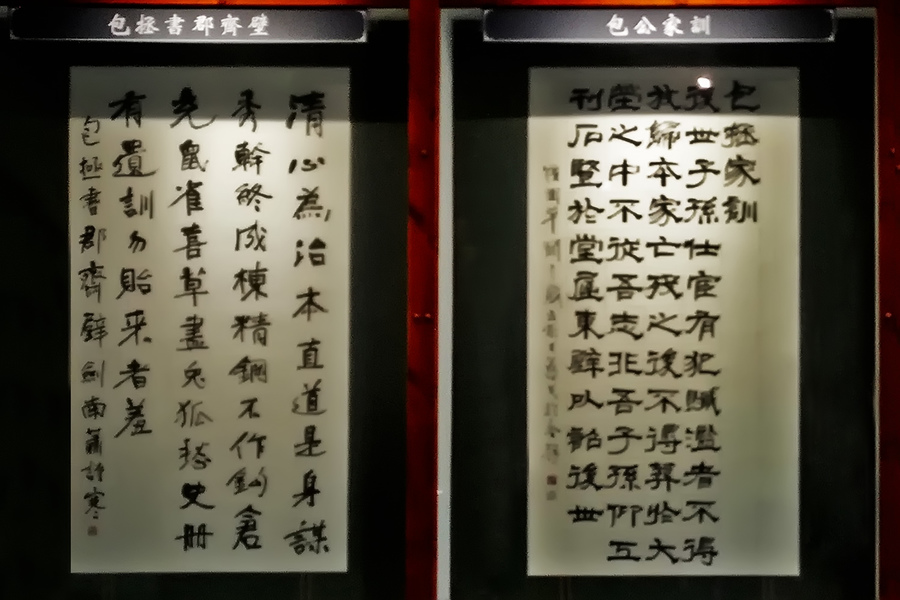 包拯書郡齊壁
清心為治本直道是身謀
秀幹終成棟精鋼不作鈎倉
充鼠雀喜草盡兔狐愁史冊
有遺訓勿貽來者羞
包拯書郡齊壁劍南蕭
包公家訓
包拯家訓
後世子孫仕宦有犯贓濫者不得
放歸本家亡歿之後不得葬於大
塋之中不從吾志非吾子孫仰
刊石竪於堂屋東壁以詔後世